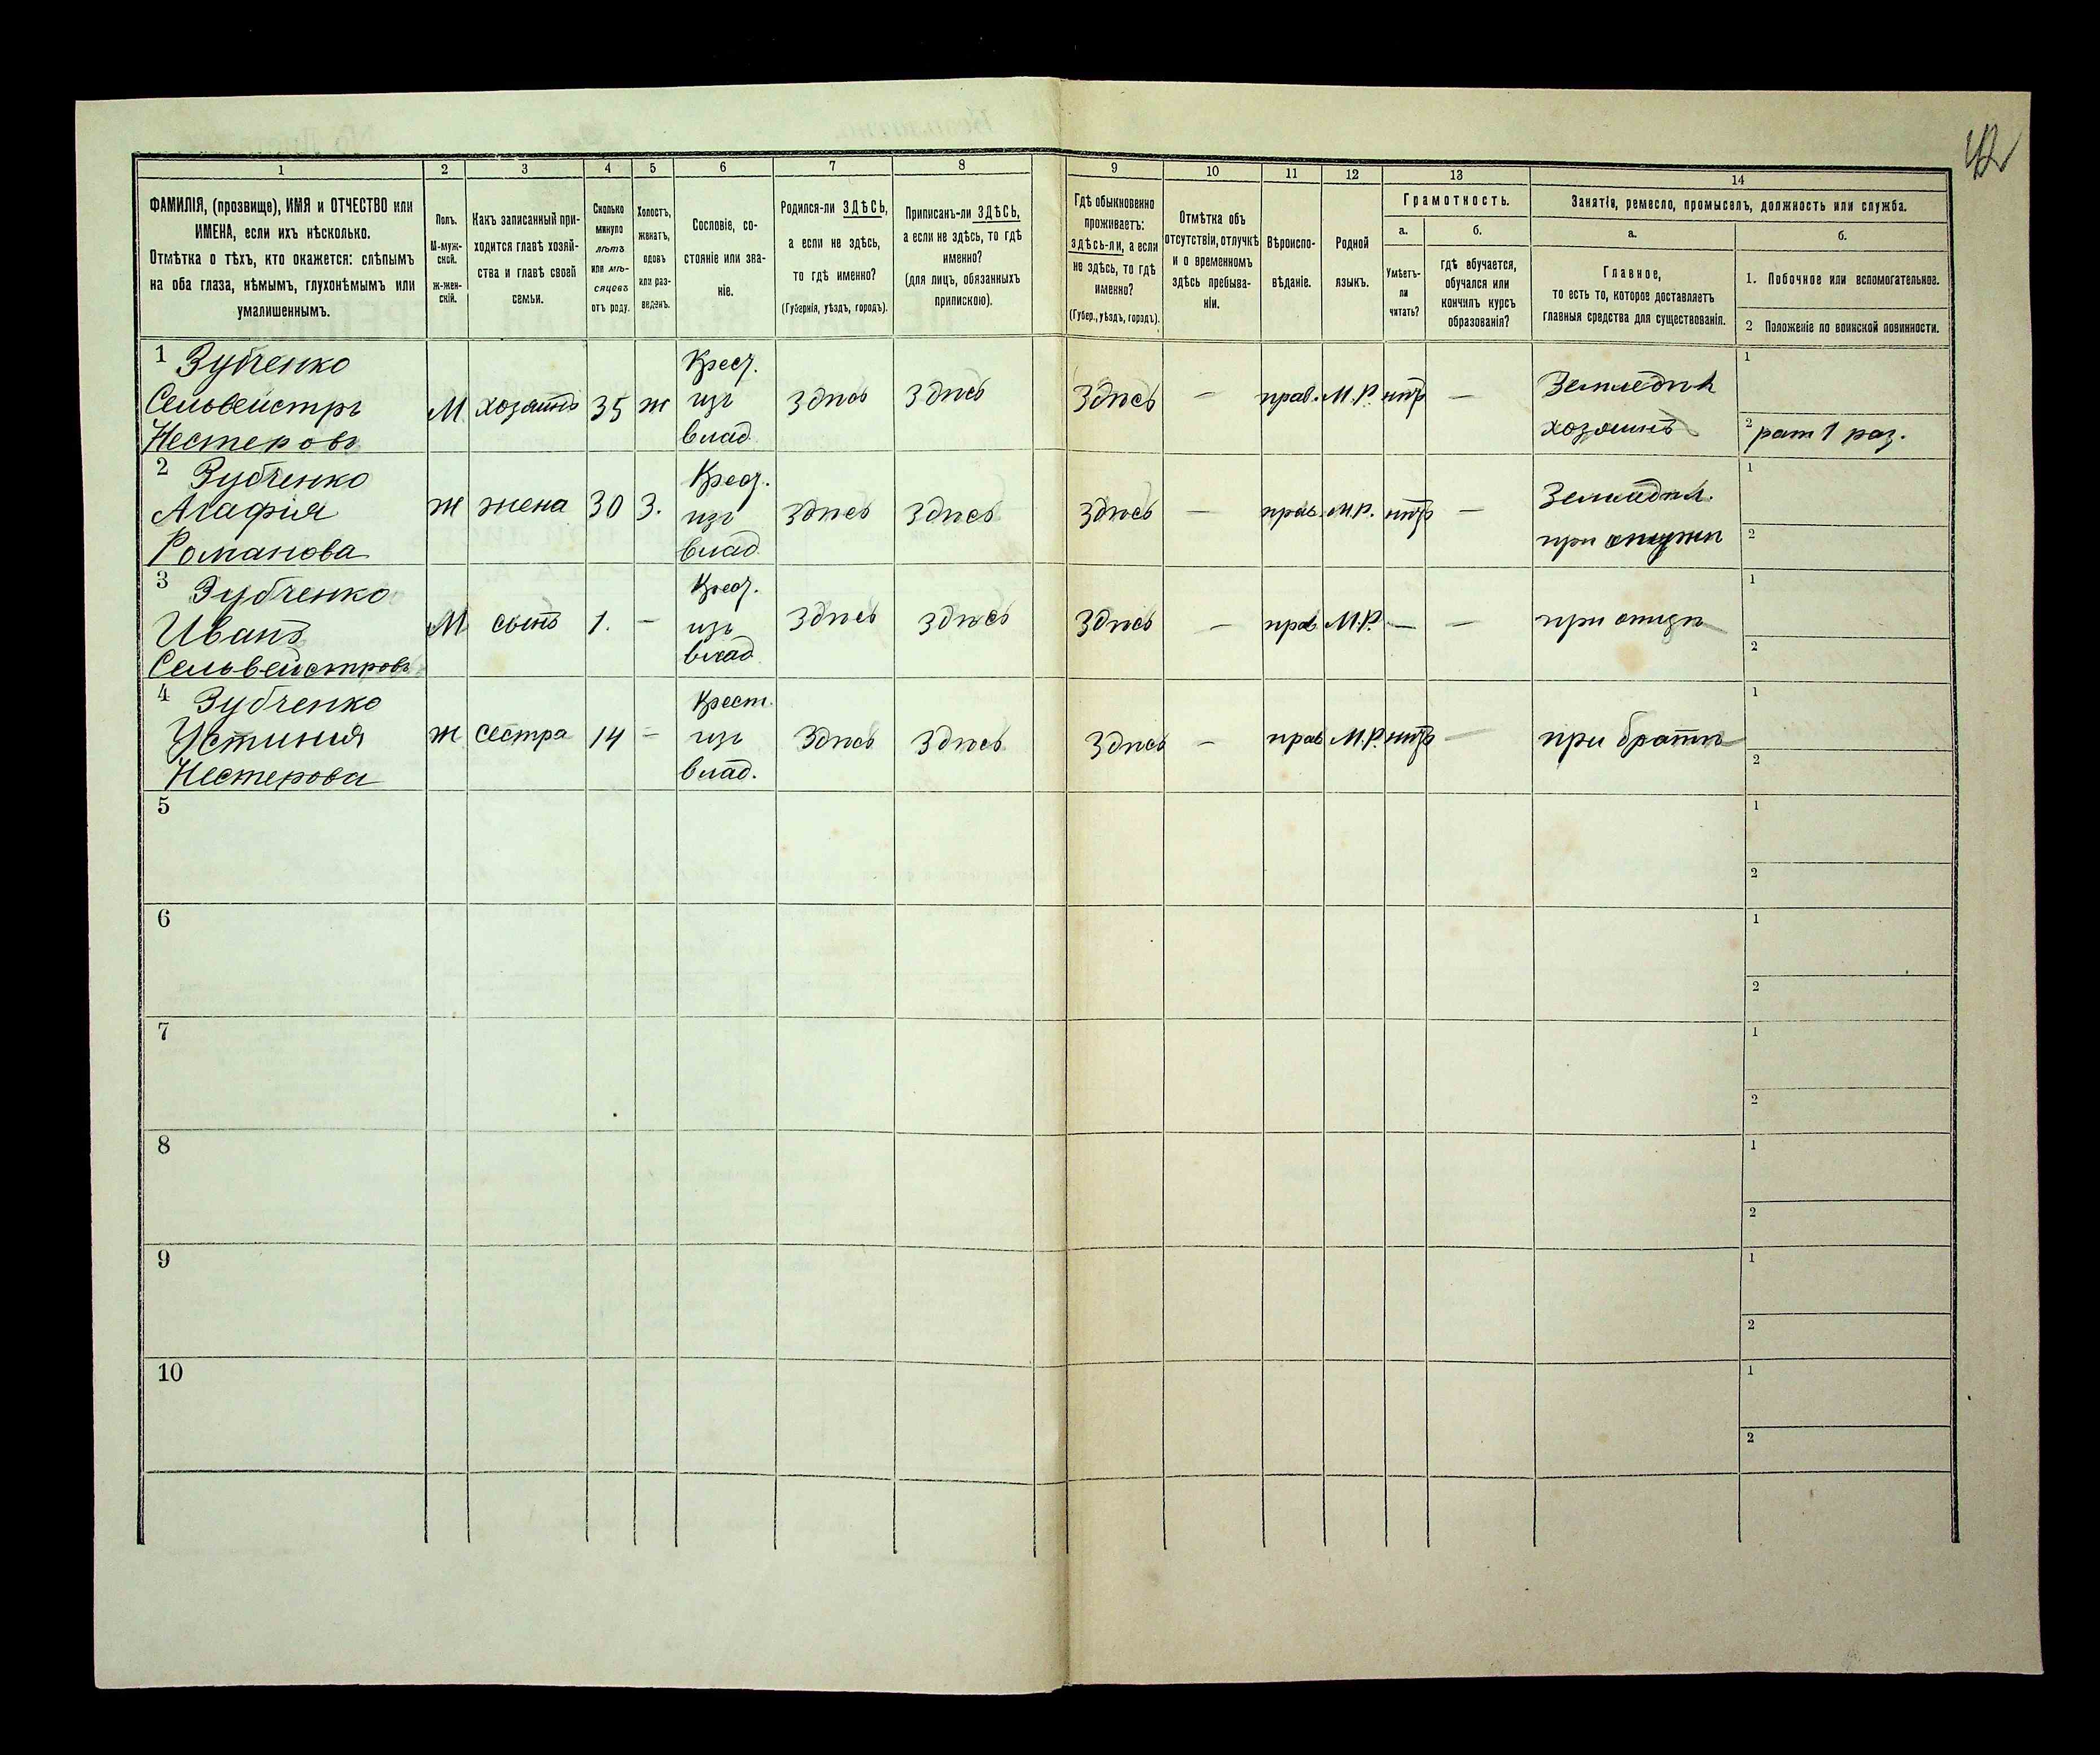 42
1 2 3 4 5 6 7 8 9 10 11 12 13 14
ФАМИЛІЯ, (прозвище), ИМЯ и ОТЧЕСТВО или
ИМЕНА, если ихъ нѣсколько.
Отмѣтка о тѣхъ, кто окажется: слѣпымъ
на оба глаза, нѣмымъ, глухонѣмымъ или
умалишеннымъ.
Полъ.
М-муж-
ской.
ж-жен-
скій.
Какъ записанный при-
ходится главѣ хозяй-
ства и главѣ своей
семьи.
Сколько
минуло
лѣтъ
или мѣ-
сяцевъ
отъ роду.
Холостъ,
женатъ,
вдовъ
или раз-
веденъ.
Сословіе, со-
стояніе или зва-
ніе.
Родился-ли ЗДѢСЬ,
а если не здѣсь,
то гдѣ именно?
(Губернія, уѣздъ, городъ).
Приписанъ-ли ЗДѢСЬ,
а если не здѣсь, то гдѣ
именно?
(для лицъ, обязанныхъ
припискою).
Гдѣ обыкновенно
проживаетъ:
здѣсь-ли, а если
не здѣсь, то гдѣ
именно?
(Губер., уѣздъ, городъ).
Отмѣтка объ
отсутствіи, отлучкѣ
и о временномъ
здѣсь пребыва-
ніи.
Вѣроиспо-
вѣданіе.
Родной
языкъ.
Грамотность.
а.
Умѣетъ-
ли
читать?
б.
гдѣ обучается,
обучался или
кончилъ курсъ
образованія?
Занятіе, ремесло, промыселъ, должность или служба.
а.
Главное,
то есть то, которое доставляетъ
главныя средства для существованія.
б.
1. Побочное или вспомогательное.
2 Положеніе по воинской повинности.
1 Зубченко
Сельвейстръ
Нестеровъ
М хозяинъ 35 ж
Крест.
изъ
влад.
Здѣсь Здѣсь Здѣсь — прав. М.Р. нѣтъ —
Земледѣл
хозяинъ
1
2 рат 1 раз.
2 Зубченко
Агафія
Романова
ж жена 30 З.
Крест.
изъ
влад.
Здѣсь Здѣсь Здѣсь — прав. М.Р. нѣтъ —
Земледѣл.
при мужѣ
1
2
3 Зубченко
Иванъ
Сельвейстровъ
М сынъ 1. —
Крест.
изъ
влад
Здѣсь Здѣсь Здѣсь — прав М.Р. — —
при отцѣ
1
2
4 Зубченко
Устинія
Нестерова
ж сестра 14 —
Крест.
изъ
влад.
Здѣсь Здѣсь Здѣсь — прав М.Р. нѣтъ —
при братѣ
1
2
5
1
2
6
1
2
7
1
2
8
1
2
9
1
2
10
1
2